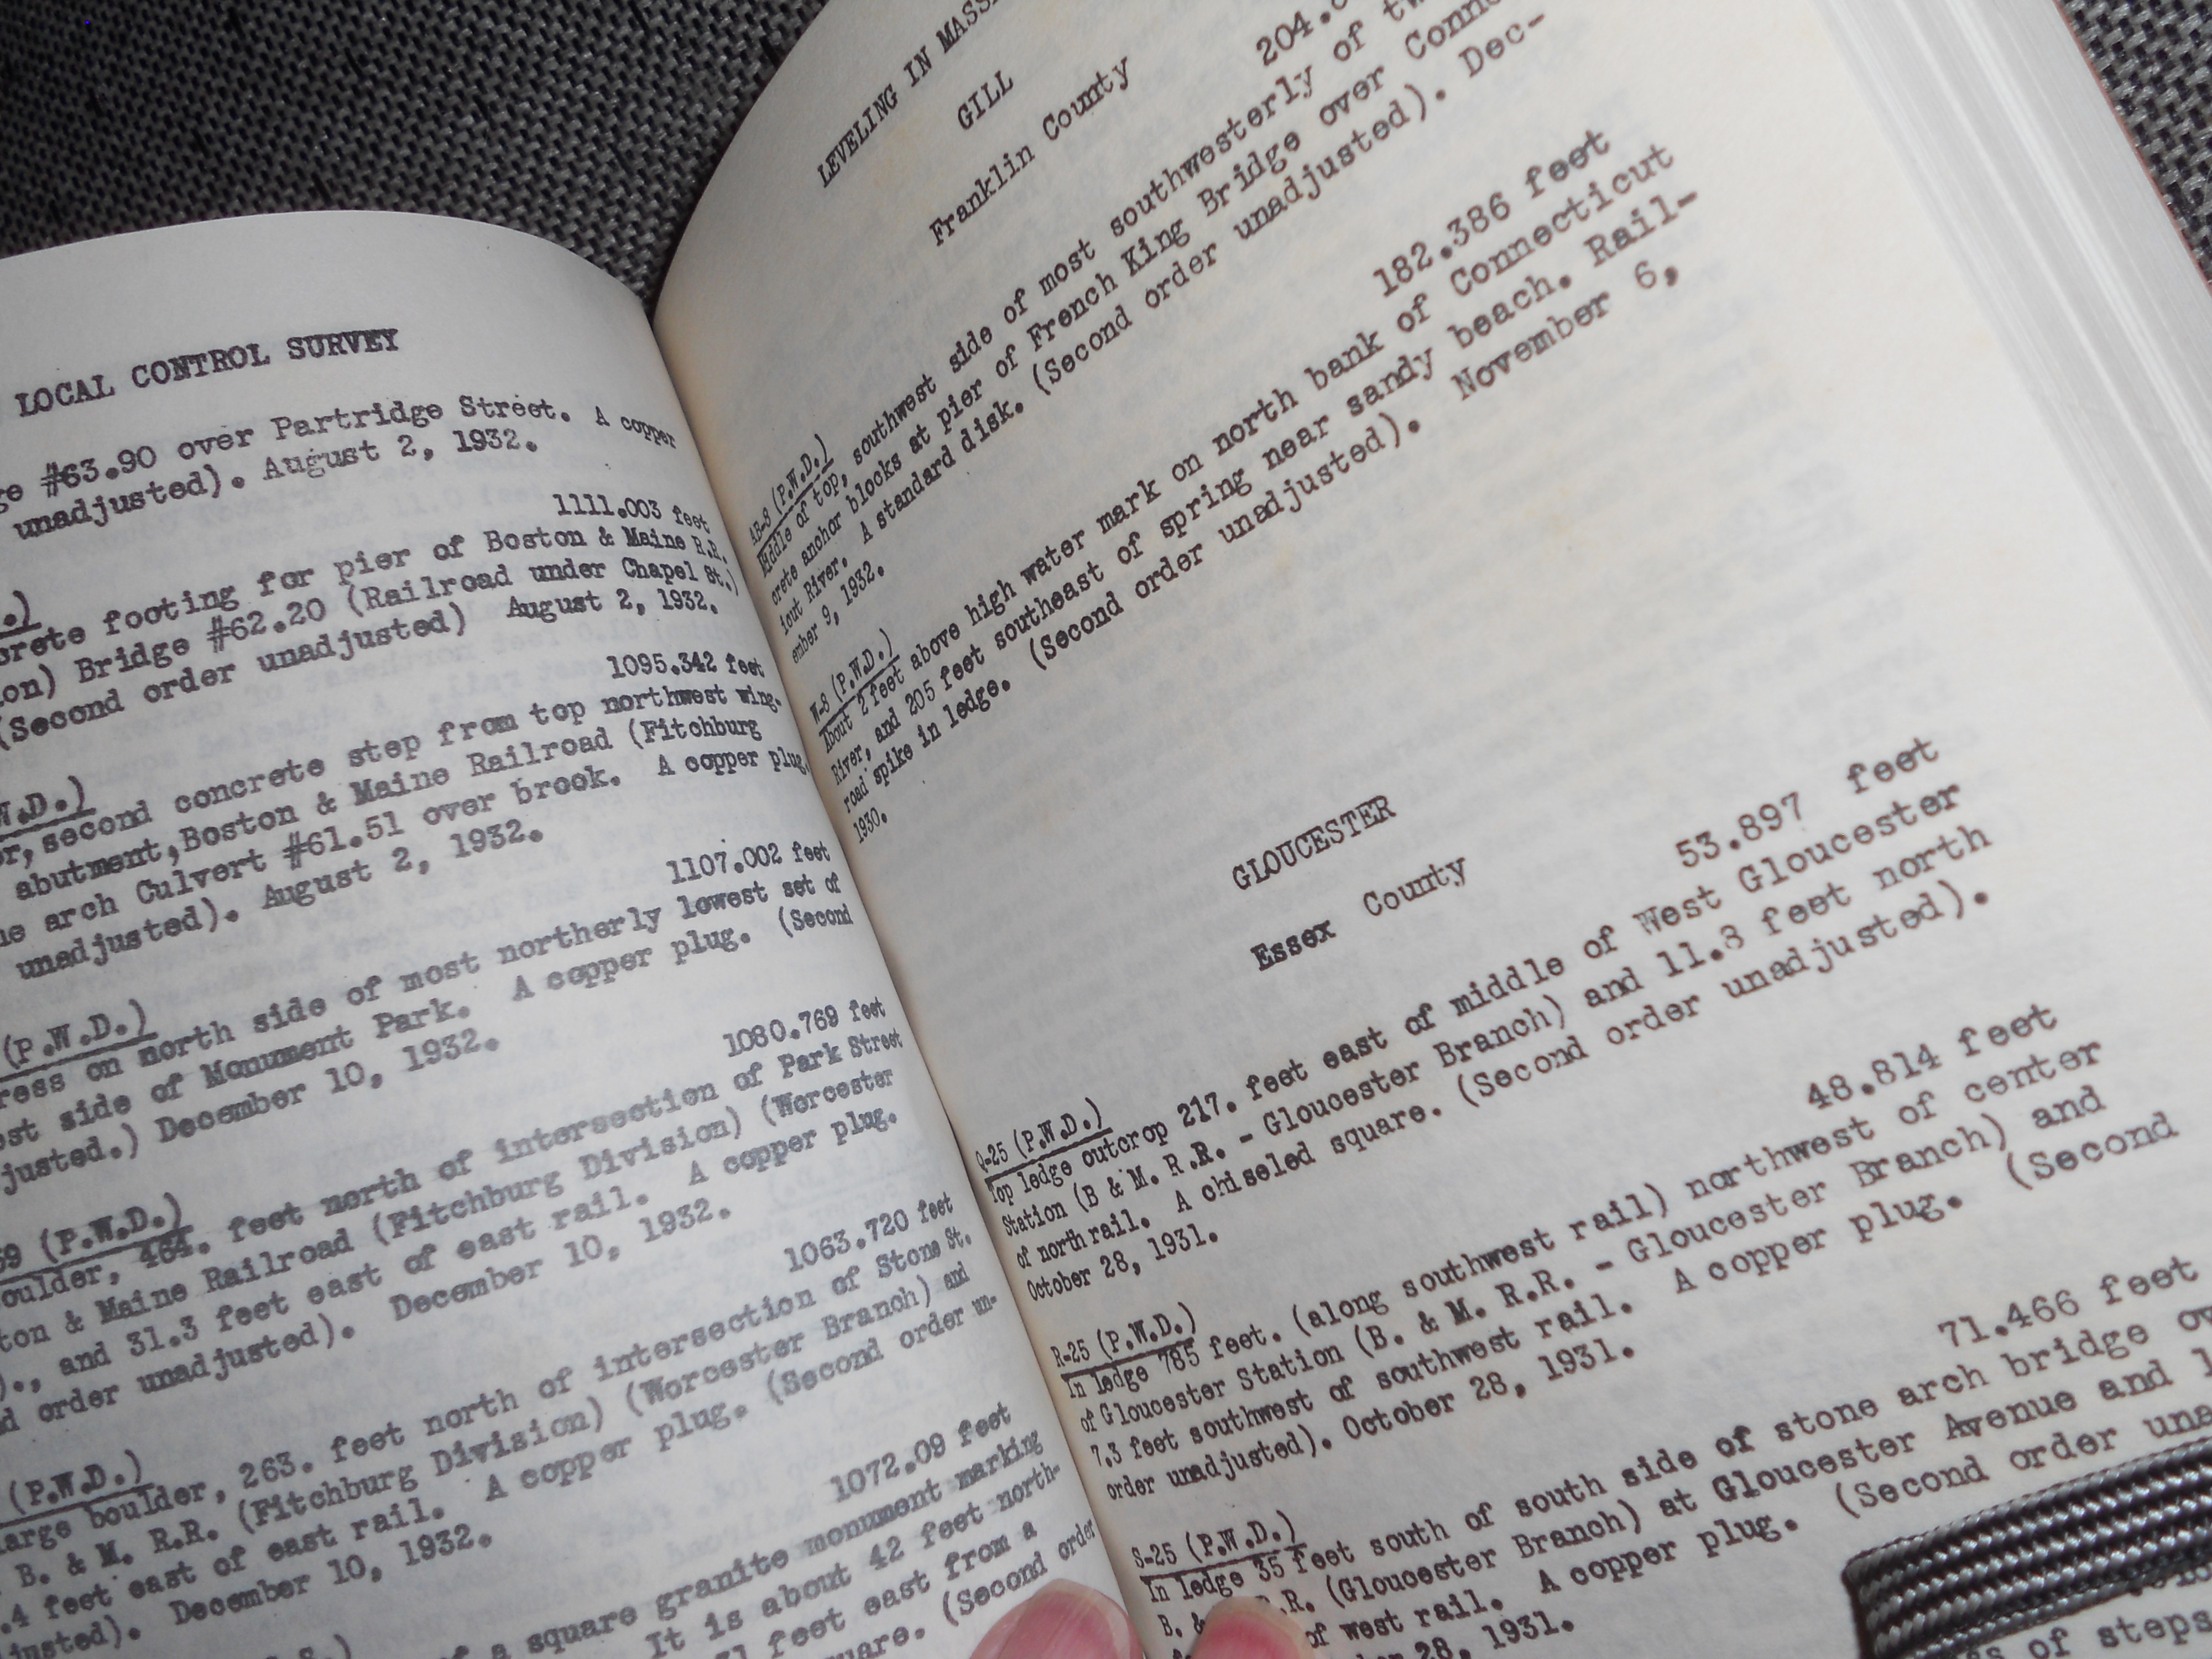 LOCAL CONTROL SURVEY
#63.90 over Partridge Street. A copper
unadjusted). August 2, 1932.
1111.003 feet
footing for pier of Boston & Maine R.R.
Bridge #62.20 (Railroad under Chapel St.)
(Second order unadjusted) August 2, 1932.
1095.342 feet
second concrete step from top northwest wing-
abutment, Boston & Maine Railroad (Fitchburg
arch Culvert #61.51 over brook. A copper plug.
unadjusted). August 2, 1932.
1107.002 feet
(P.W.D.)
on north side of most northerly lowest set of
side of Monument Park. A copper plug. (Second
December 10, 1932.
1080.769 feet
(P.W.D.)
464. feet north of intersection of Park Street
& Maine Railroad (Fitchburg Division) (Worcester
and 31.3 feet east of east rail. A copper plug.
order unadjusted). December 10, 1932.
1063.720 feet
(P.W.D.)
boulder, 263. feet north of intersection of Stone St.
B. & M. R.R. (Fitchburg Division) (Worcester Branch) and
.4 feet east of east rail. A copper plug. (Second order un-
December 10, 1932.
1072.09 feet
of a square granite monument marking
It is about 42 feet north-
feet east from a
(Second order
LEVELING IN
GILL
Franklin County
AB-8 (P.W.D.)
Middle of top, southwest side of most southwesterly of
crete anchor blocks at pier of French King Bridge over
icut River. A standard disk. (Second order unadjusted). Dec-
ember 9, 1932.
182.386 feet
W-8 (P.W.D.)
About 2 feet above high water mark on north bank of Connecticut
River, and 205 feet southeast of spring near sandy beach. Rail-
road spike in ledge. (Second order unadjusted). November 6,
1930.
GLOUCESTER
Essex County
53.897 feet
Q-25 (P.W.D.)
Top ledge outcrop 217. feet east of middle of West Gloucester
Station (B & M. R.R. - Gloucester Branch) and 11.3 feet north
of north rail. A chiseled square. (Second order unadjusted).
October 28, 1931.
48.814 feet
R-25 (P.W.D.)
In ledge 785 feet. (along southwest rail) northwest of center
of Gloucester Station (B. & M. R.R. - Gloucester Branch) and
7.3 feet southwest of southwest rail. A copper plug. (Second
order unadjusted). October 28, 1931.
71.466 feet
S-25 (P.W.D.)
In ledge 35 feet south of south side of stone arch bridge
B. & R.R. (Gloucester Branch) at Gloucester Avenue and
of west rail. A copper plug. (Second order
28, 1931.
of steps